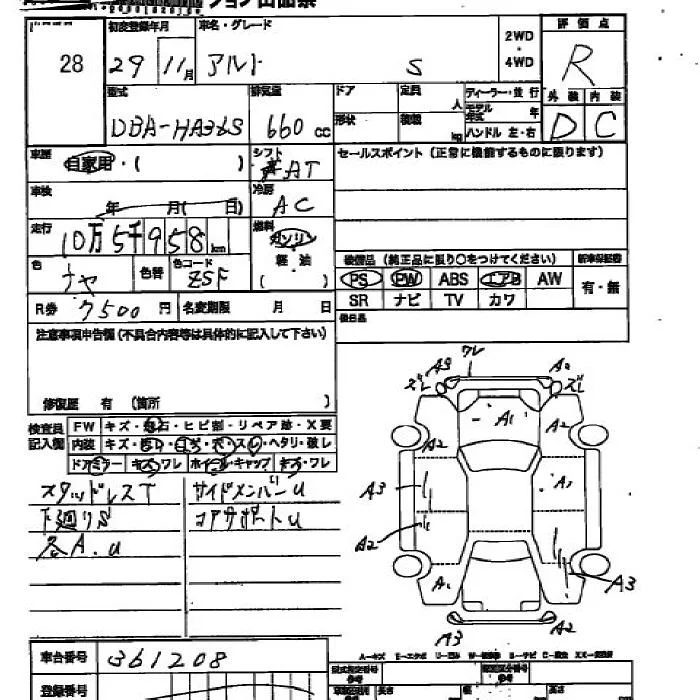 28
初度登録年月 車名・グレード 2WD・4WD 評価点
29 11月 アルト S R
型式 排気量 ドア 定員 人 ディーラー・並行 外装 内装
形状 積載 kg モデル年式 年
DBA-HA36S 660cc ハンドル 左・右 D C
車歴 自家用・( ) シフト AT セールスポイント(正常に機能するものに限ります)
車検 年 月( 日) 冷房 AC
走行 10万5千958km 燃料 ガソリン
軽油
( )
装備品(純正品に限り○をつけてください) 新車保証書
色 チャ 色替 色コード ZSF PS PW ABS エアB AW 有・無
SR ナビ TV カワ
R券 7500円 名変期限 月 日 後日品
注意事項申告欄(不具合内容等は具体的に記入して下さい)
修復歴 有(箇所 )
検査員記入欄
FW キズ・飛石・ヒビ割・リペア跡・X要
内装 キズ・ヨゴレ・コゲ・穴・スレ・ヘタリ・破レ
ドアミラー キズ・ワレ ホイール・キャップ キズ・ワレ
スタッドレスT サイドメンバーU
下廻りS コアサポートU
各A.U
A3 ワレ A2
ズレ ズレ
A1
A2 A2
A3 A1
A2
A1 A3
A3 A2
車台番号 361208
登録番号